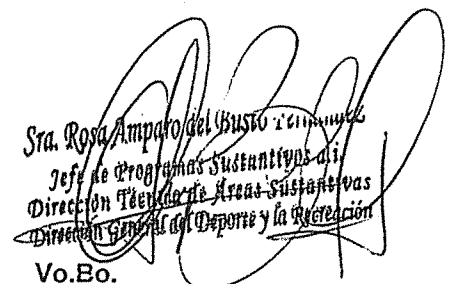 Sra. Rosa Amparo del Busto
Jefe de Programas Sustantivos a.i.
Dirección Técnica de Áreas Sustantivas
Dirección General del Deporte y la Recreación
Vo.Bo.